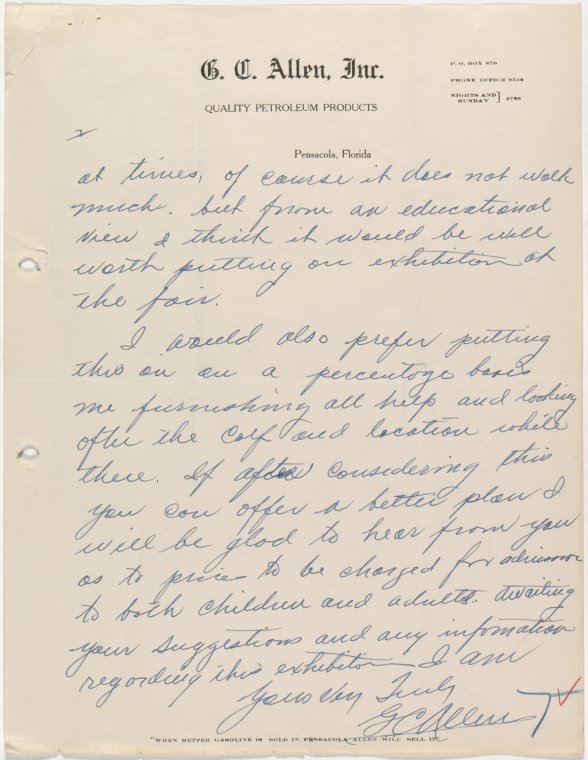 G. C. Allen, Inc.
QUALITY PETROLEUM PRODUCTS
P. O. BOX 876
PHONE OFFICE 6519
NIGHTS AND SUNDAY } 2786
2
Pensacola, Florida
at times, of course it does not walk
much. but from an educational
view I think it would be well
worth putting on exhibition at
the fair.
I would also prefer putting
this on on a percentage basis
me furnishing all help and looking
after the calf and location while
there. If after considering this
you can offer a better plan I
will be glad to hear from you
as to price to be charged for admission
to both children and adults. Awaiting
your suggestions and any infomation
regarding this exhibition I am
Yours Very Truly
G C Allen
"WHEN BETTER GASOLINE IS SOLD IN PENSACOLA ALLEN WILL SELL IT"